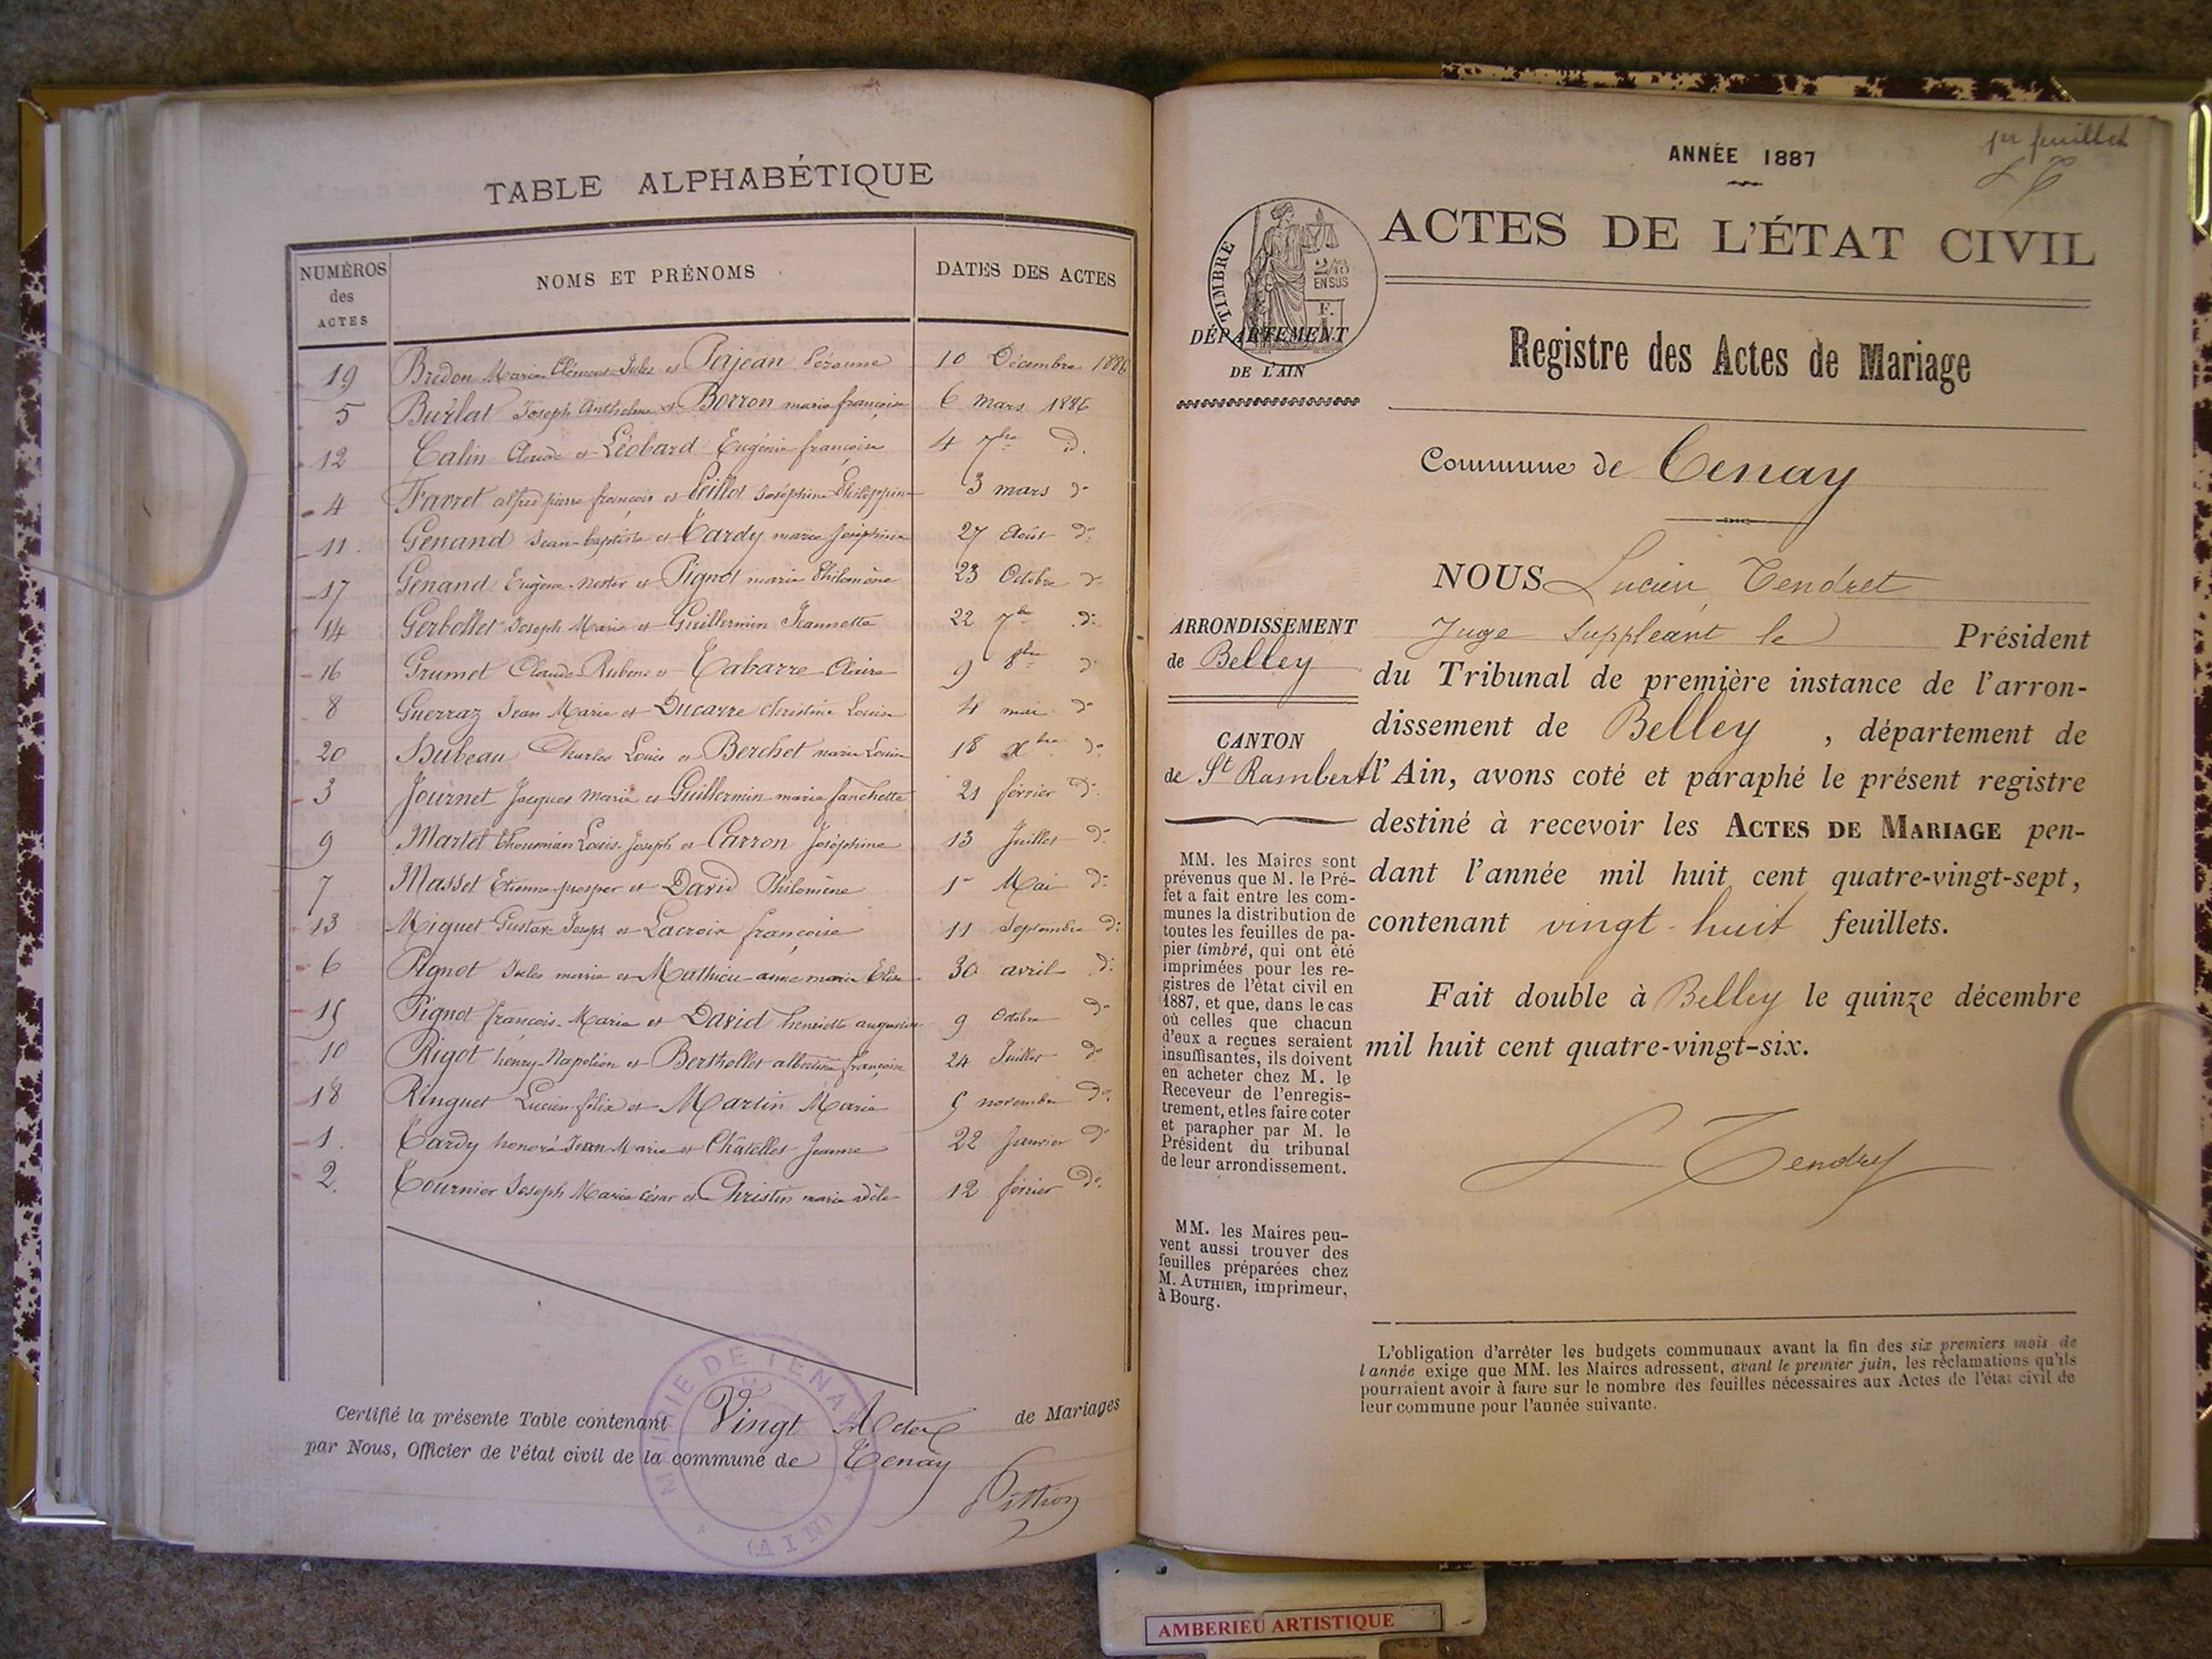 TABLE ALPHABÉTIQUE
NUMÉROS des ACTES NOMS ET PRÉNOMS DATES DES ACTES
19 Bredon Marie Clément Jules et Perjean Péronne 10 Décembre 1886
5 Burlat Joseph Anthelme et Borron marie françoise 6 mars 1886
12 Calin Claude et Léobard Eugénie françoise 4 7bre do.
4 Favret alfred pierre françois et Peillot Joséphine Philippine 3 mars do
11. Genand Jean-baptiste et Tardy marie Joséphine 27 Août do
17 Genand Eugène-Nestor et Pignot marie Philomène 23 Octobre do
14 Gerbollet Joseph Marie et Guillermin Jeannette 22 7bre do
16 Grumet Claude Rubens et Tabarre Claire 9 8bre do
8 Guerraz Jean Marie et Ducarre christine Louise 4 mai do
20 Hubeau Charles Louis et Berchet marie Louise 18 Xbre do
3 Journet Jacques Marie et Guillermin marie fanchette 21 février do
9 Martel Louis-Joseph et Carron Joséphine 13 Juillet do
7 Masset Etienne-prosper et David Philomène 1er Mai do
13 Miguet Gustave Joseph et Lacroix françoise 11 Septembre do
6 Pignot Jules marie et Mathieu anne marie Elise 30 avril do
15 Pignot françois-Marie et David henriette augustine 9 Octobre do
10 Rigot henry-Napoléon et Berthollet albertine françoise 24 Juillet do
18 Ringuet Lucien-félix et Martin Marie 5 novembre do
1. Tardy honoré Jean Marie et Châtellet Jeanne 22 Janvier do
2. Tournier Joseph Marie César et Christin marie adèle 12 février do.
Certifié la présente Table contenant Vingt Actes de Mariages
par Nous, Officier de l'état civil de la commune de Tenay
MAIRIE DE TENAY
(AIN)
1er feuillet
LT
ANNÉE 1887
ACTES DE L'ÉTAT CIVIL
TIMBRE
2/10
EN SUS
F.
DÉPARTEMENT
DE L'AIN
Registre des Actes de Mariage
Commune de Tenay
ARRONDISSEMENT
de Belley
CANTON
de St Rambert
MM. les Maires sont
prévenus que M. le Pré-
fet a fait entre les com-
munes la distribution de
toutes les feuilles de pa-
pier timbré, qui ont été
imprimées pour les re-
gistres de l'état civil en
1887, et que, dans le cas
où celles que chacun
d'eux a reçues seraient
insuffisantes, ils doivent
en acheter chez M. le
Receveur de l'enregis-
trement, et les faire coter
et parapher par M. le
Président du tribunal
de leur arrondissement.
MM. les Maires peu-
vent aussi trouver des
feuilles préparées chez
M. AUTHIER, imprimeur,
à Bourg.
NOUS Lucien Tendret
Juge Suppléant le Président
du Tribunal de première instance de l'arron-
dissement de Belley , département de
l'Ain, avons coté et paraphé le présent registre
destiné à recevoir les ACTES DE MARIAGE pen-
dant l'année mil huit cent quatre-vingt-sept,
contenant vingt-huit feuillets.
Fait double à Belley le quinze décembre
mil huit cent quatre-vingt-six.
L Tendret
L'obligation d'arrêter les budgets communaux avant la fin des six premiers mois de
l'année exige que MM. les Maires adressent, avant le premier juin, les réclamations qu'ils
pourraient avoir à faire sur le nombre des feuilles nécessaires aux Actes de l'état civil de
leur commune pour l'année suivante.
AMBERIEU ARTISTIQUE